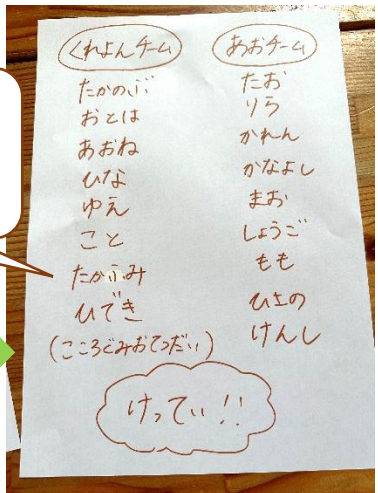 くれよんチーム
たかのぶ
おとは
あおね
ひな
ゆえ
こと
たかふみ
ひでき
(こころぐみおてつだい)
あおチーム
たお
りら
かれん
かなよし
まお
しょうご
もも
ひとの
けんし
けってい!!